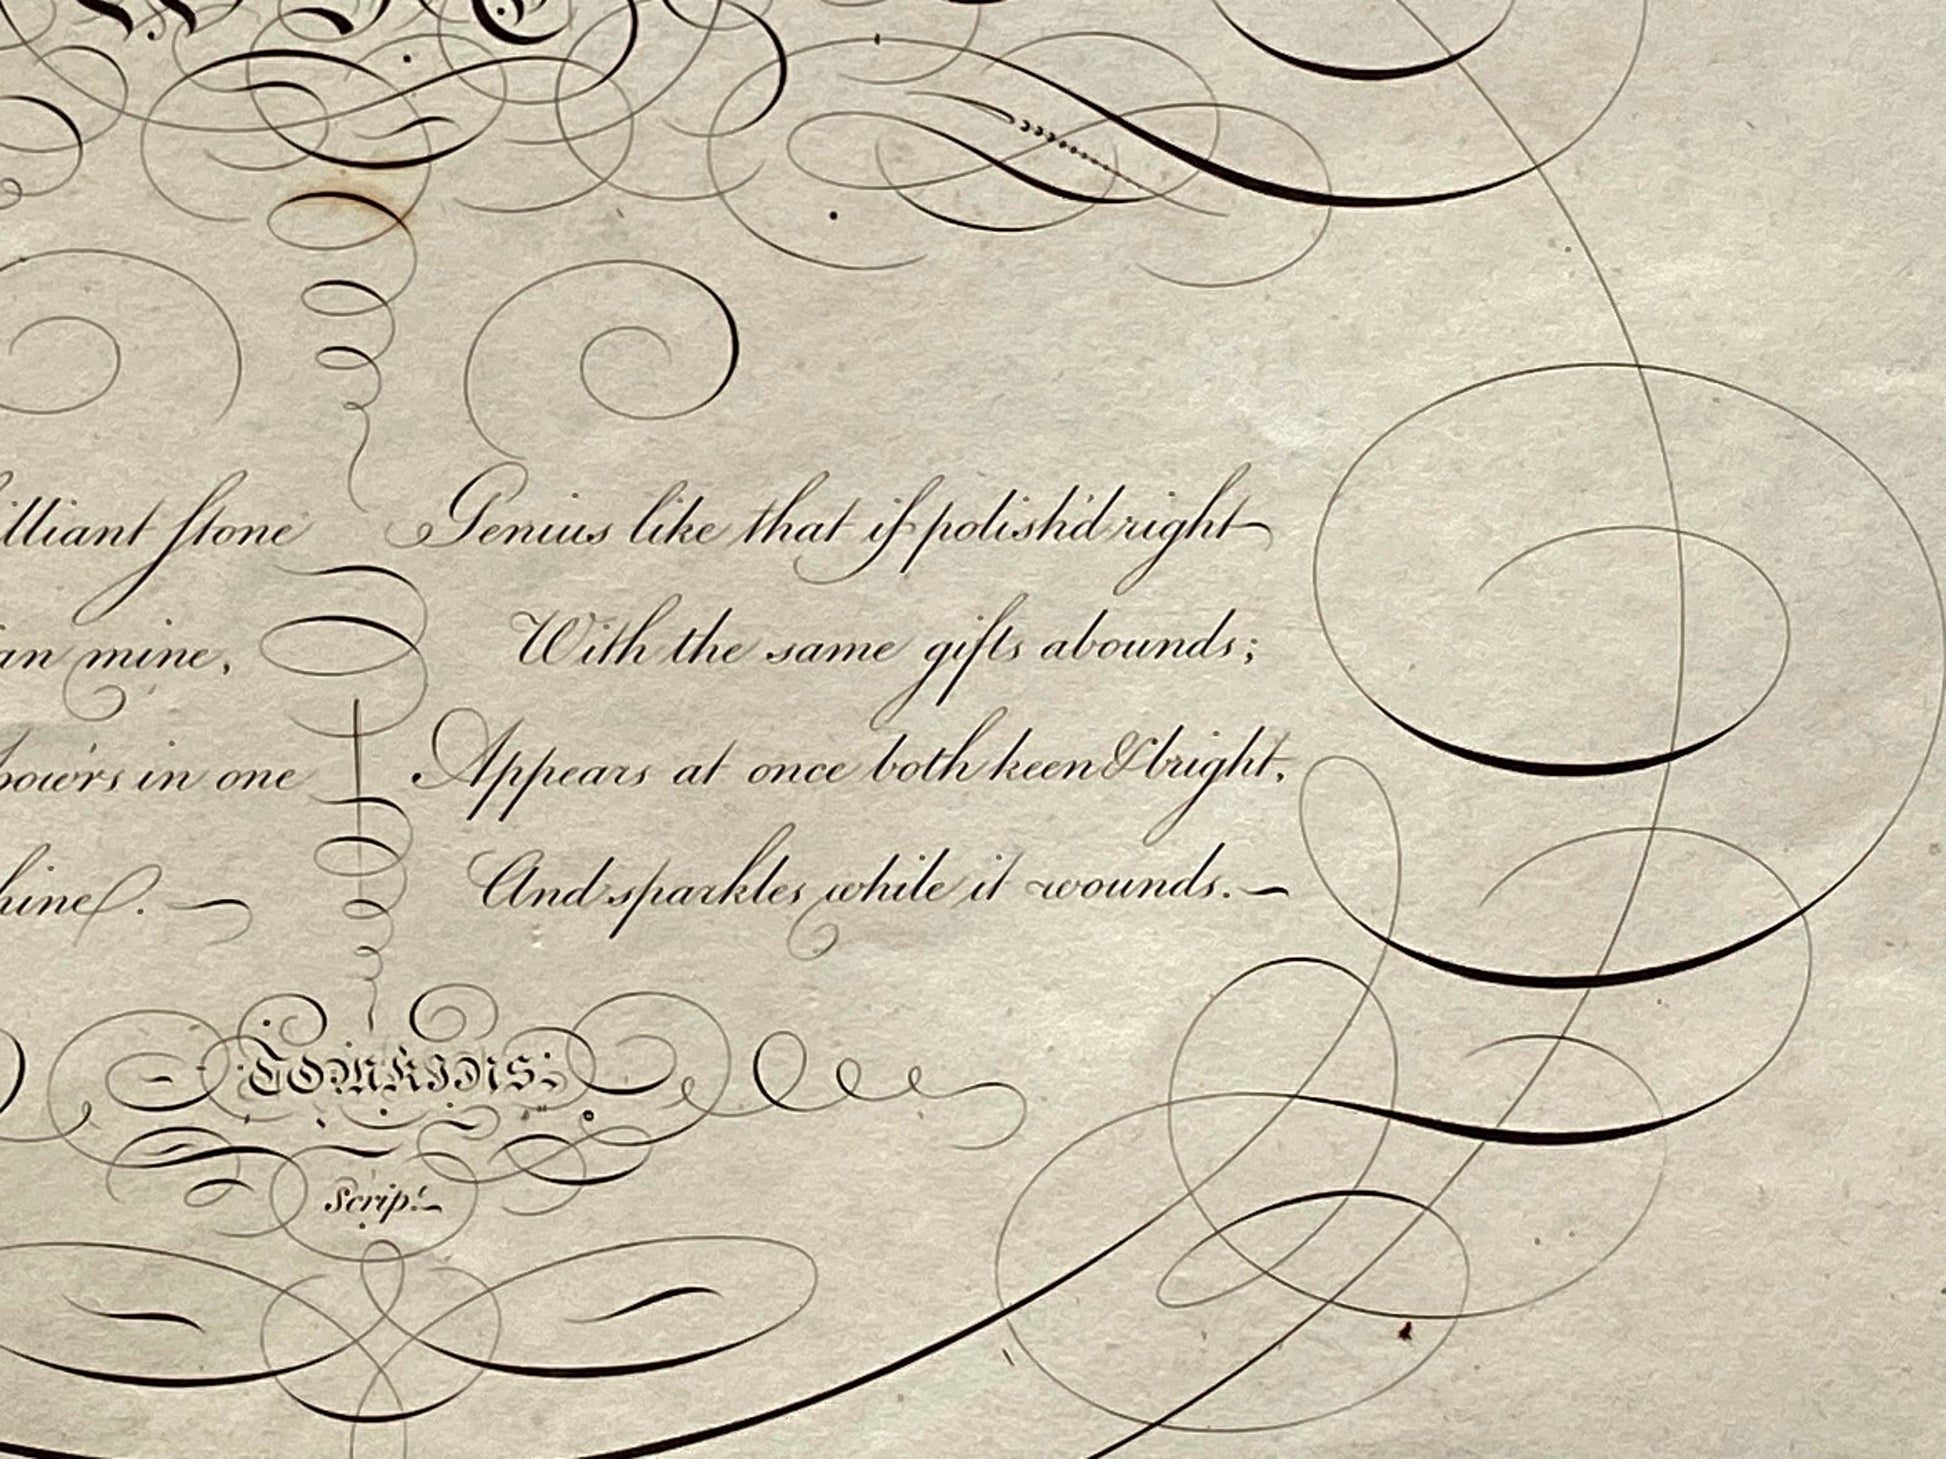 WIT
illiant stone
an mine,
pow'rs in one
hine.
Genius like that if polish'd right
With the same gifts abounds;
Appears at once both keen & bright,
And sparkles while it wounds.
TOMKINS.
Scrip.t